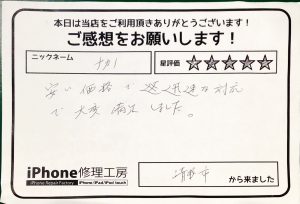 本日は当店をご利用頂きありがとうございます！
ご感想をお願いします！
ニックネーム
ナカノ
星評価 ☆☆☆☆☆
安い価格で迅速な対応
で大変満足しました。
iPhone修理工房
iPhone Repair Factory iPhone/iPad/iPod touch
から来ました